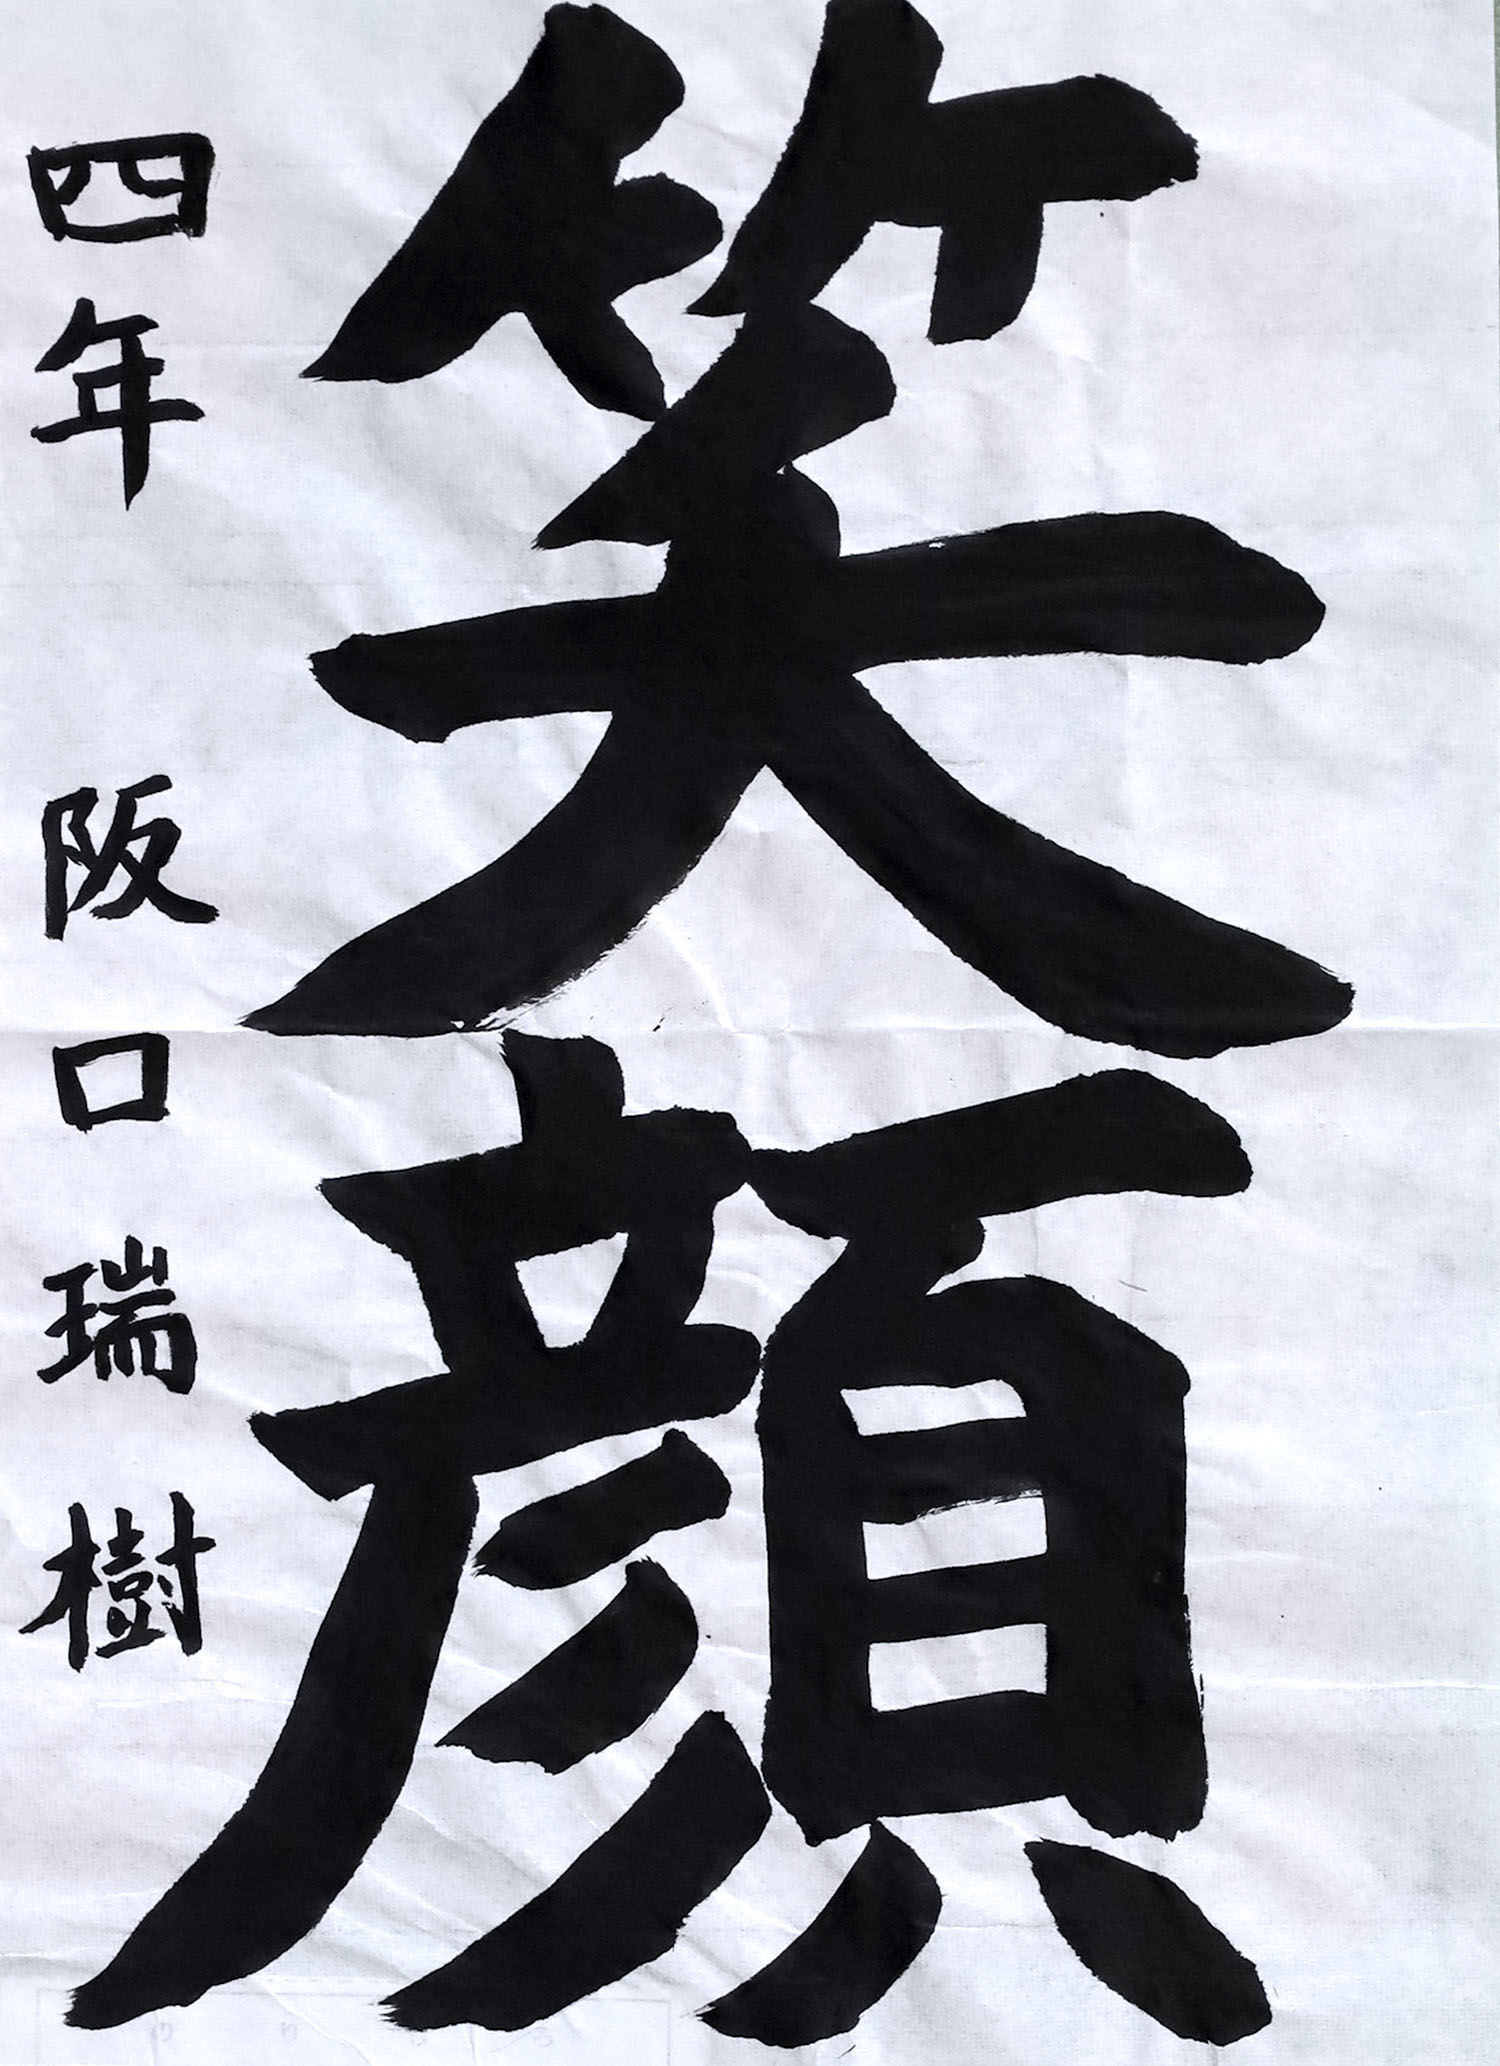 笑顔
四年 阪口瑞樹